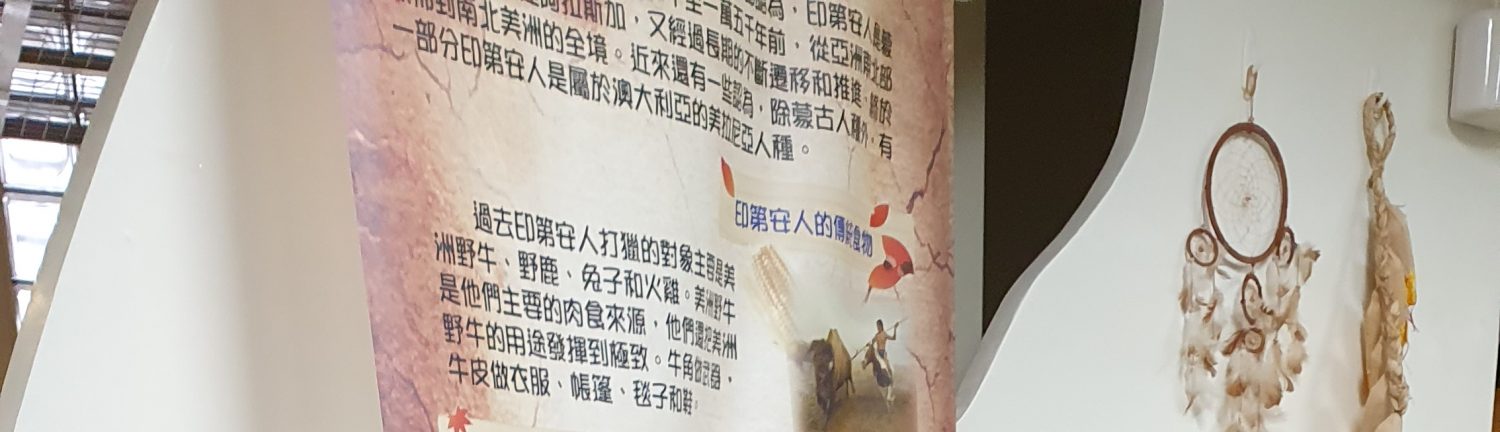 一萬五千年前，從亞洲南北部
拉斯加，又經過長期的不斷遷移和推進，終於
到南北美洲的全境。近來還有一些認為，除蒙古人種外，有
一部分印第安人是屬於澳大利亞的美拉尼亞人種。
印第安人的傳統食物
過去印第安人打獵的對象主要是美
洲野牛、野鹿、兔子和火雞。美洲野牛
是他們主要的肉食來源，他們還把美洲
野牛的用途發揮到極致。牛角做武器，
牛皮做衣服、帳篷、毯子和鞋。